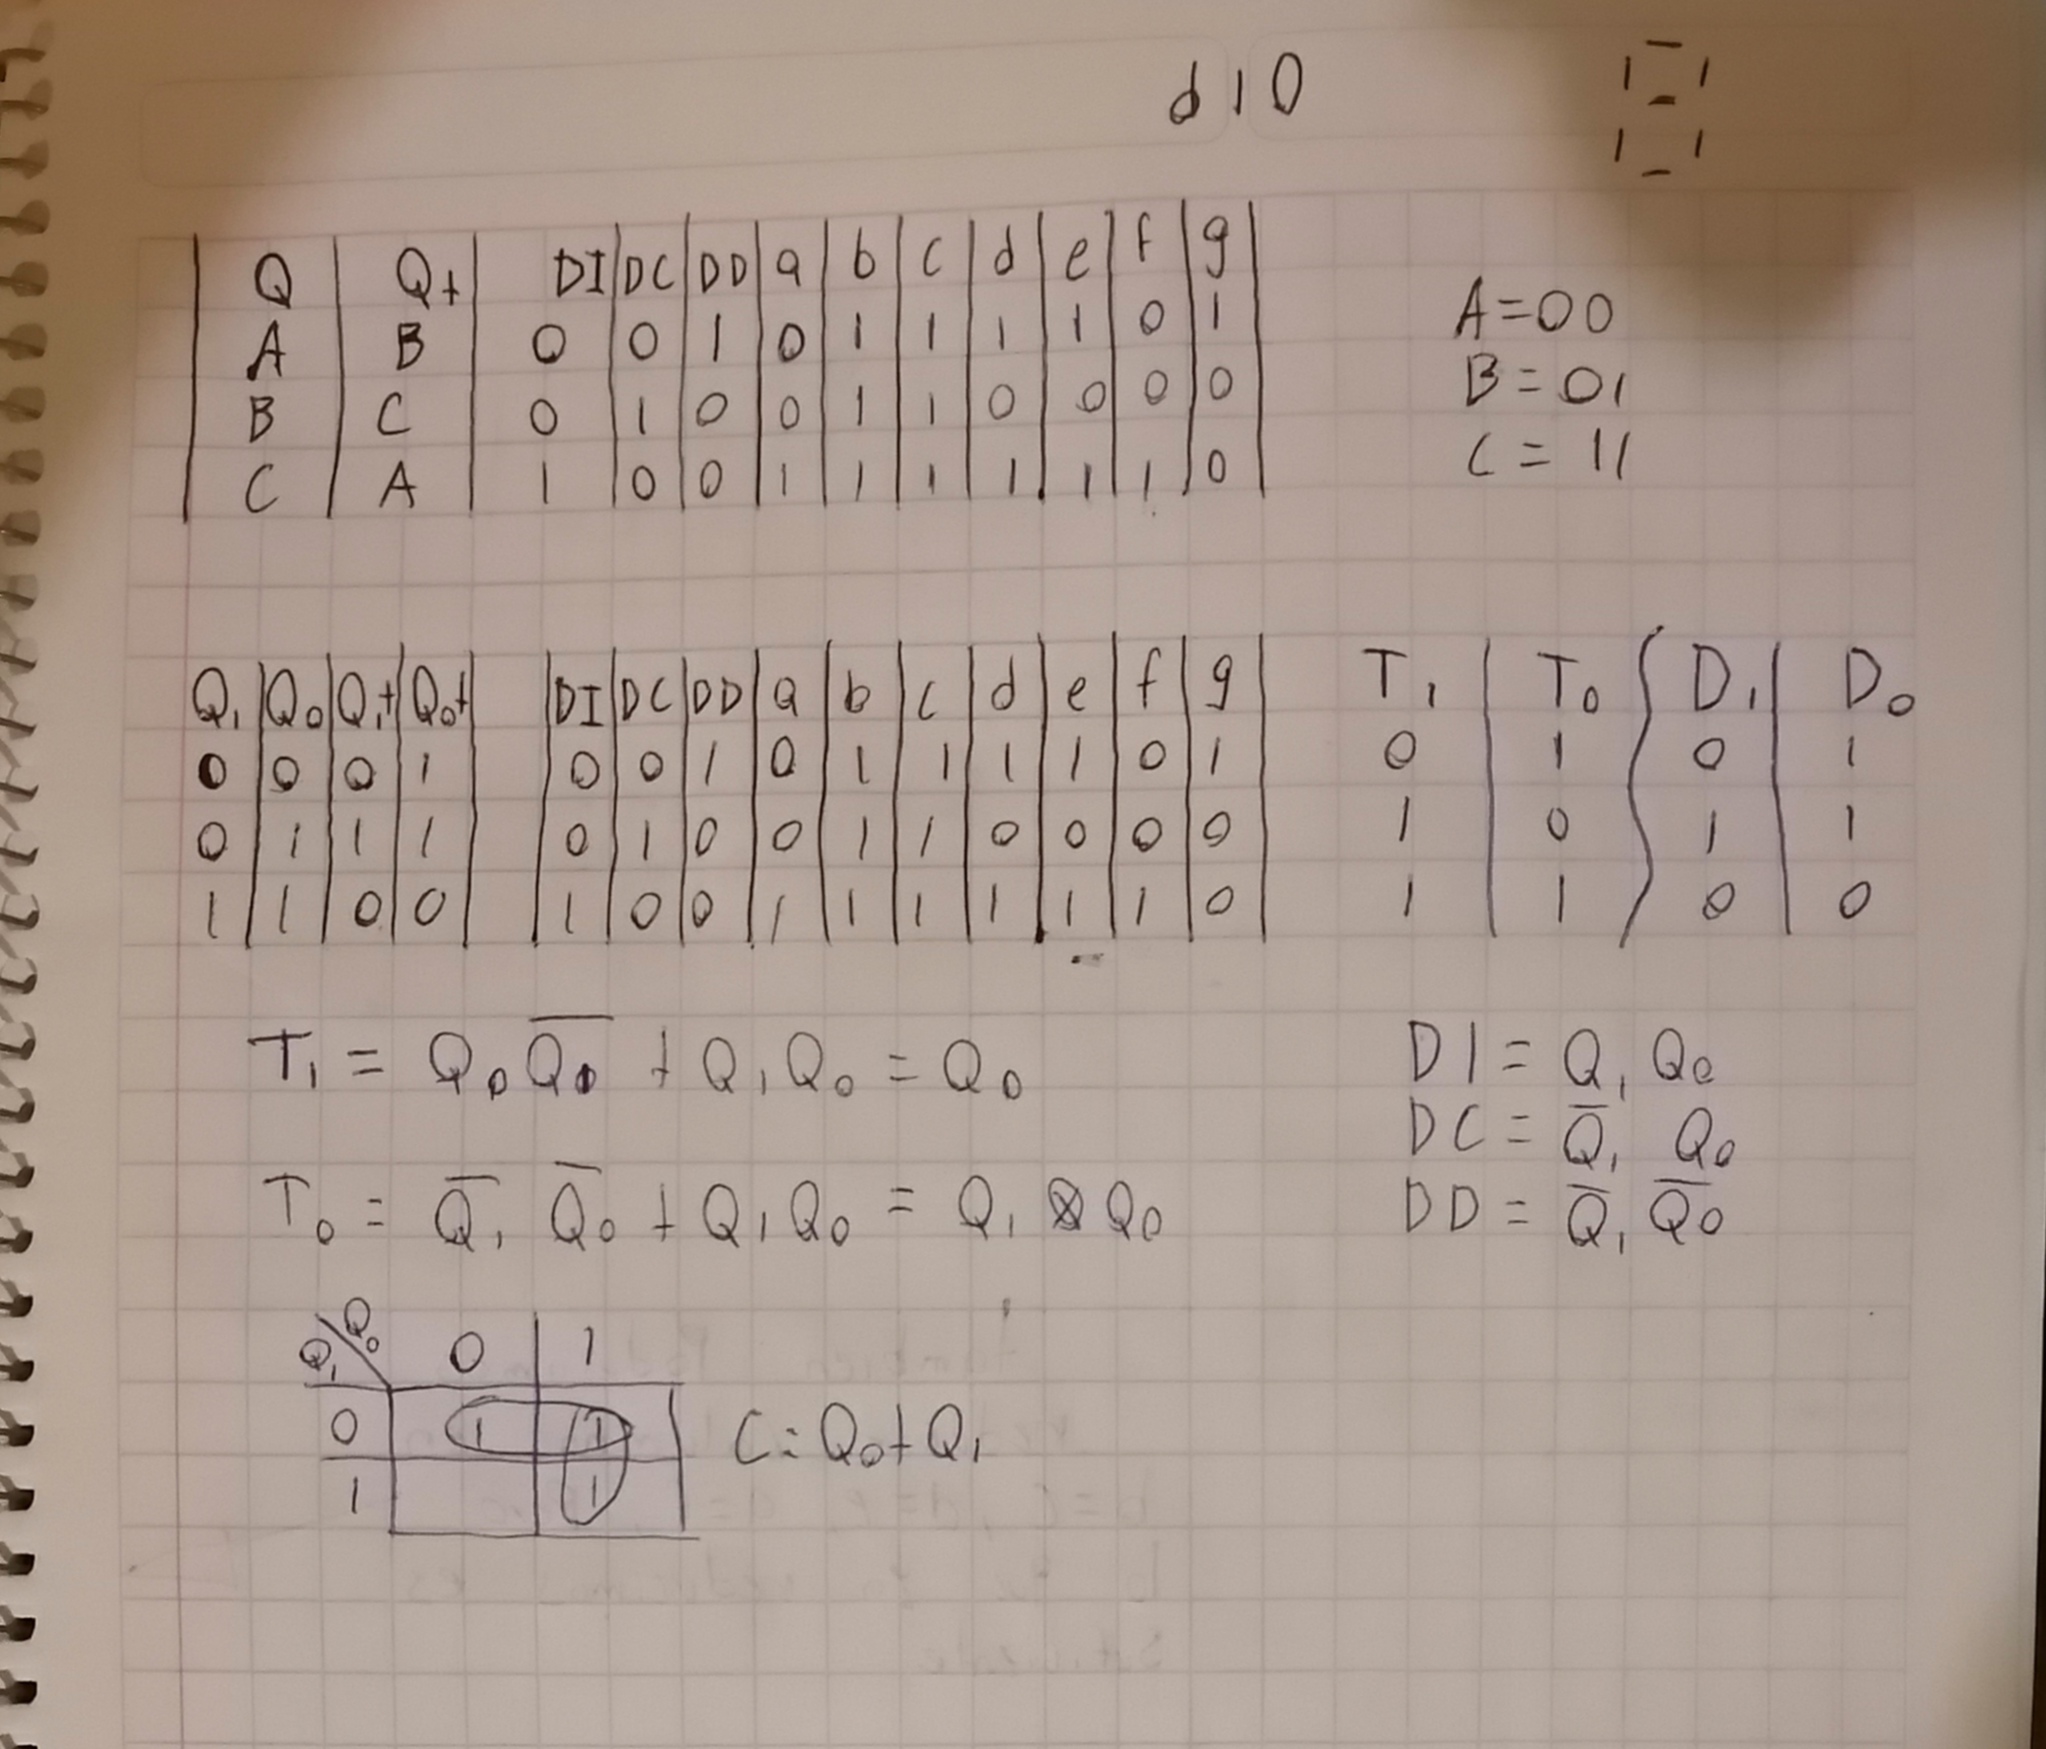 d10
Q Q+ DI DC DD a b c d e f g
A B 0 0 1 0 1 1 1 1 0 1
B C 0 1 0 0 1 1 0 0 0 0
C A 1 0 0 1 1 1 1 1 1 0
A=00
B=01
C=11
Q₁ Q₀ Q₁+ Q₀+ DI DC DD a b c d e f g T₁ T₀ D₁ D₀
0 0 0 1 0 0 1 0 1 1 1 1 0 1 0 1 0 1
0 1 1 1 0 1 0 0 1 1 0 0 0 0 1 0 1 1
1 1 0 0 1 0 0 1 1 1 1 1 1 0 1 1 0 0
T₁ = Q₀ Q̅₀ + Q₁Q₀ = Q₀
T₀ = Q̅₁ Q̅₀ + Q₁Q₀ = Q₁ ⊗ Q₀
DI = Q₁ Q₀
DC = Q̅₁ Q₀
DD = Q̅₁ Q̅₀
Q₁ Q₀ 0 1
0 1 1
1 1
C = Q₀+Q₁